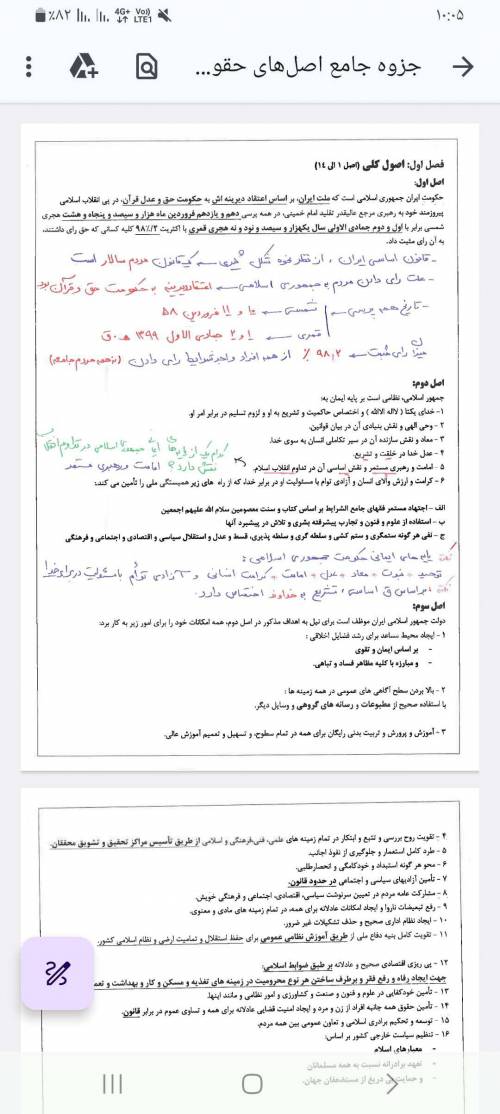 ۱۰:۰۵
4G+ Vo) LTE1 ٪۸۲
جزوه جامع اصل‌های حقو...
فصل اول: اصول کلی (اصل ۱ الی ۱۴)
اصل اول:
حکومت ایران جمهوری اسلامی است که ملت ایران، بر اساس اعتقاد دیرینه اش به حکومت حق و عدل قرآن، در پی انقلاب اسلامی
پیروزمند خود به رهبری مرجع عالیقدر تقلید امام خمینی، در همه پرسی دهم و یازدهم فروردین ماه هزار و سیصد و پنجاه و هشت هجری
شمسی برابر با اول و دوم جمادی الاولی سال یکهزار و سیصد و نود و نه هجری قمری با اکثریت ۹۸/۲٪ کلیه کسانی که حق رای داشتند،
به آن رای مثبت داد.
- قانون اساسی ایران، از نظر نحوه شکل گیری ← یک قانون مردم سالار است
- علت رای دادن مردم به جمهوری اسلامی ← اعتقاد دیرینه به حکومت حق و قرآن بود
- تاریخ همه پرسی شمسی ← ۱۰ و ۱۱ فروردین ۵۸
قمری ← ۱ و ۲ جمادی الاول ۱۳۹۹ ه.ق
میزان رای مثبت ← ۹۸,۲ ٪ از همه افراد واجد شرایط رای دادن (نه همه مردم جامعه)
اصل دوم:
جمهوری اسلامی، نظامی است بر پایه ایمان به:
۱- خدای یکتا (لااله الاالله) و اختصاص حاکمیت و تشریع به او و لزوم تسلیم در برابر امر او.
۲- وحی الهی و نقش بنیادی آن در بیان قوانین.
۳- معاد و نقش سازنده آن در سیر تکاملی انسان به سوی خدا.
۴- عدل خدا در خلقت و تشریع.
کدام یک از پایه های ایمانی جمهوری اسلامی در تداوم انقلاب
۵- امامت و رهبری مستمر و نقش اساسی آن در تداوم انقلاب اسلام.
نقش دارد؟ امامت و رهبری مستمر
۶- کرامت و ارزش والای انسان و آزادی توام با مسئولیت او در برابر خدا، که از راه های زیر همبستگی ملی را تأمین می کند:
الف - اجتهاد مستمر فقهای جامع الشرایط بر اساس کتاب و سنت معصومین سلام الله علیهم اجمعین
ب - استفاده از علوم و فنون و تجارب پیشرفته بشری و تلاش در پیشبرد آنها
ج - نفی هر گونه ستمگری و ستم کشی و سلطه گری و سلطه پذیری، قسط و عدل و استقلال سیاسی و اقتصادی و اجتماعی و فرهنگی
نکته: پایه های ایمانی حکومت جمهوری اسلامی:
توحید + نبوت + معاد + عدل + امامت + کرامت انسانی و آزادی توأم با مسئولیت در برابر خدا
نکته: بر اساس ق اساسی، تشریع به خداوند اختصاص دارد.
اصل سوم:
دولت جمهور اسلامی ایران موظف است برای نیل به اهداف مذکور در اصل دوم، همه امکانات خود را برای امور زیر به کار برد:
۱- ایجاد محیط مساعد برای رشد فضایل اخلاقی :
- بر اساس ایمان و تقوی
- و مبارزه با کلیه مظاهر فساد و تباهی.
۲- بالا بردن سطح آگاهی های عمومی در همه زمینه ها :
با استفاده صحیح از مطبوعات و رسانه های گروهی و وسایل دیگر.
۳- آموزش و پرورش و تربیت بدنی رایگان برای همه در تمام سطوح، و تسهیل و تعمیم آموزش عالی.
۴- تقویت روح بررسی و تتبع و ابتکار در تمام زمینه های علمی، فنی،فرهنگی و اسلامی از طریق تأسیس مراکز تحقیق و تشویق محققان.
۵- طرد کامل استعمار و جلوگیری از نفوذ اجانب.
۶- محو هر گونه استبداد و خودکامگی و انحصارطلبی.
۷- تأمین آزادیهای سیاسی و اجتماعی در حدود قانون.
۸- مشارکت عامه مردم در تعیین سرنوشت سیاسی، اقتصادی، اجتماعی و فرهنگی خویش.
۹- رفع تبعیضات ناروا و ایجاد امکانات عادلانه برای همه، در تمام زمینه های مادی و معنوی.
۱۰- ایجاد نظام اداری صحیح و حذف تشکیلات غیر ضرور.
۱۱- تقویت کامل بنیه دفاع ملی از طریق آموزش نظامی عمومی برای حفظ استقلال و تمامیت ارضی و نظام اسلامی کشور.
۱۲- پی ریزی اقتصادی صحیح و عادلانه بر طبق ضوابط اسلامی:
جهت ایجاد رفاه و رفع فقر و برطرف ساختن هر نوع محرومیت در زمینه های تغذیه و مسکن و کار و بهداشت و تعم
۱۳- تأمین خودکفایی در علوم و فنون و صنعت و کشاورزی و امور نظامی و مانند اینها.
۱۴- تأمین حقوق همه جانبه افراد از زن و مرد و ایجاد امنیت قضایی عادلانه برای همه و تساوی عموم در برابر قانون.
۱۵- توسعه و تحکیم برادری اسلامی و تعاون عمومی بین همه مردم.
۱۶- تنظیم سیاست خارجی کشور بر اساس:
- معیارهای اسلام
- تعهد برادرانه نسبت به همه مسلمانان
- و حمایت بی دریغ از مستضعفان جهان.